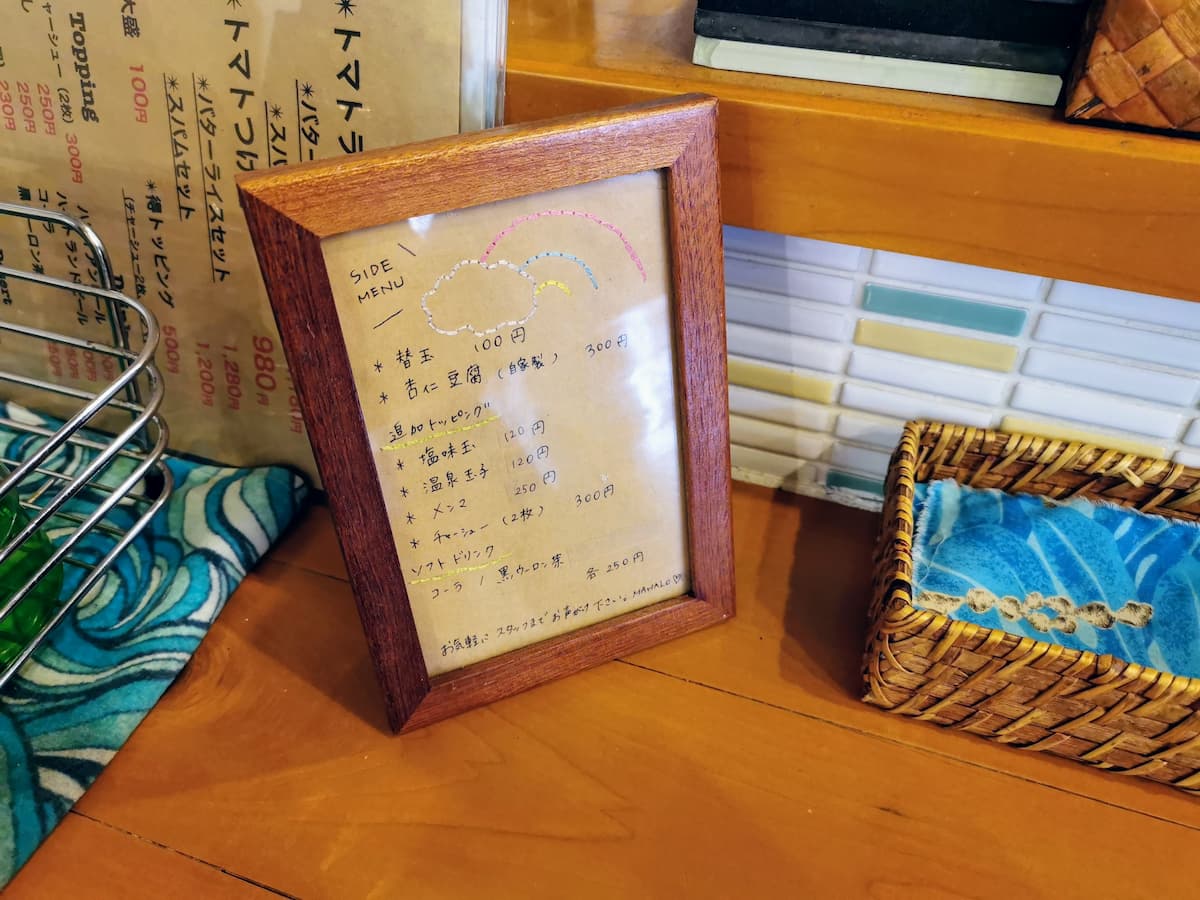 SIDE
MENU
* 替玉 100円
* 杏仁豆腐 (自家製) 300円
追加トッピング
* 塩味玉 120円
* 温泉玉子 120円
* メンマ 250円
* チャーシュー (2枚) 300円
ソフトドリンク
コーラ / 黒ウーロン茶 各250円
お気軽にスタッフまでお声がけ下さい。MAHALO♡
*トマトラ
*バター
*ス
*トマトつけ
*バターライスセット
*スパムセット
980円
1,280円
1,200円
*得トッピング 500円
(チャーシュー2枚
大盛 100円
Topping
チャーシュー (2枚) 300円
250円
250円
230円
コーラ